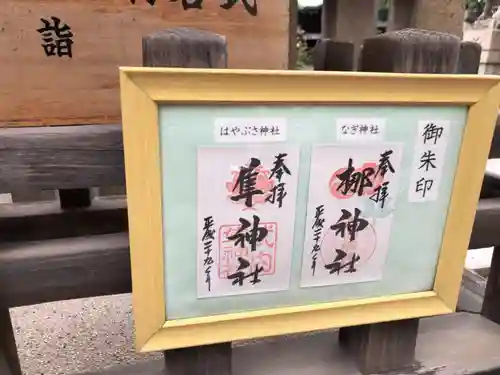 詣
はやぶさ神社
奉拝
隼神社
平成二十九
なぎ神社
奉拝
梛神社
平成二十九
御朱印